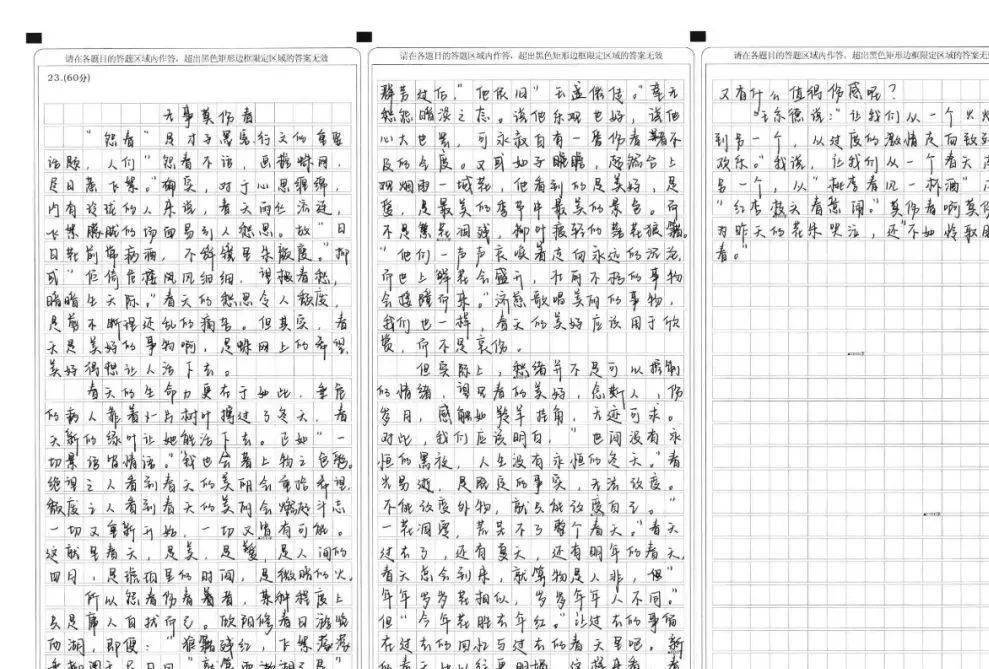 请在各题目的答题区域内作答，超出黑色矩形边框限定区域的答案无效
23.(60分)
无事莫伤春
"怨春"是才子思忌行文的重要
话题，人们"怨春不语，画檐蛛网，
尽日惹飞絮。"确实，对于心思细绵，
内有玲珑的人来说，春天雨丝流逝，
飞絮朦胧的场面易引人愁思。故"日
日花前常病酒，不辞镜里朱颜瘦。"抑
或"伫倚危楼风风细细，望极春愁，
黯黯生天际。"春天的愁思令人颓废，
是剪不断理还乱的痛苦。但其实，春
天是美好的事物啊，是蛛网上的希望，
美好得想让人活下去。
春天的生命力更在于如此，垂危
的病人靠着一片树叶撑过了冬天，春
天新的绿叶让她能活下去。正如"一
切景语皆情语。"我也会着上物之色彩。
绝望之人看到春天的美丽会重拾希望，
颓废之人看到春天的美丽会燃起斗志
一切又重新开始，一切又皆有可能。
这就是春天，是美，是暖，是人间的
四月，是琥珀里的时间，是微暗的火。
所以怨春伤春着着者，某种程度上
去是庸人自扰而已。欧阳修春日游览
西湖，即便"狼籍残红，飞絮濛濛
请在各题目的答题区域内作答，超出黑色矩形边框限定区域的答案无效
群芳过后，"他依旧
愁怨暗淡之态。说他乐观也好，说他
心大也罢，可永叔自有一番伤春者不
及的态度。又可如子瞻瞻，超然台上
观烟雨一城花，他看到的是美好，是
蓝，是最美的季节中最美的景色。而
不是繁花凋残，柳叶疲轻的落花狼籍。
"他们一声声哀唤着走向永远的沉沦，
而世上鲜花会盛开，
会随踵而来。"济慈歌唱美丽的事物，
我们也一样，春天的美好应该用于欣
赏，而不是哀伤。
但实际上，愁绪并不是可以抑制
的情绪，望见春的美好，念斯人，伤
岁月，感触如羚羊挂角，无迹可求。
对此，我们应该明白，"世间没有永
恒的黑夜，人生没有永恒的冬天。"春
光易逝，是既定的事实，无法改变。
不能改变外物，就只能改变自己。"
一花凋零，荒芜不了整个春天。"春天
过去了，还有夏天，还有明年的春天，
春天总会到来，就算物是人非，但"
年年岁岁花相似，岁岁年年人不同。"
但"今年花胜去年红。"让过去的事留
在过去的回忆与过去的春天里吧。新
请在各题目的答题区域内作答，超出黑色矩形边框限定区域的答案无
又有什么值得伤感呢？
王尔德说："让我们从一个火
到另一个，从过度的激情走向致
欢乐。"我说，让我们从一个春天
另一个，从"桃李春风一杯酒"
"红杏枝头春意闹。"莫伤春啊莫
为昨天的花朵哭泣，还不如怜取眼
春。"